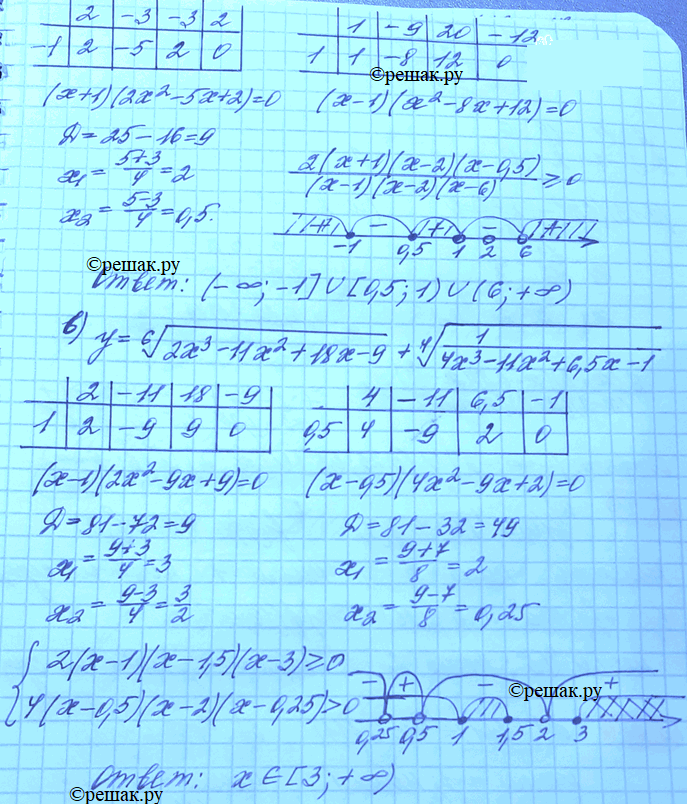 2 | -3 | -3 | 2
-1 | 2 | -5 | 2 | 0
1 | -9 | 20 | -12
1 | 1 | -8 | 12 | 0
©решак.ру
(x+1)(2x²-5x+2)=0
(x-1)(x²-8x+12)=0
Д=25-16=9
x₁ = (5+3)/4 = 2
x₂ = (5-3)/4 = 0,5.
2(x+1)(x-2)(x-0,5) / (x-1)(x-2)(x-6) ≥ 0
+ - + - +
-1 0,5 1 2 6
©решак.ру
Ответ: (-∞; -1] ∪ [0,5; 1) ∪ (6; +∞)
в) y = ⁶√(2x³-11x²+18x-9) + ⁴√(1/(4x³-11x²+6,5x-1))
2 | -11 | 18 | -9
1 | 2 | -9 | 9 | 0
4 | -11 | 6,5 | -1
0,5 | 4 | -9 | 2 | 0
(x-1)(2x²-9x+9)=0
(x-0,5)(4x²-9x+2)=0
Д=81-72=9
Д=81-32=49
x₁ = (9+3)/4 = 3
x₁ = (9+7)/8 = 2
x₂ = (9-3)/4 = 3/2
x₂ = (9-7)/8 = 0,25
{ 2(x-1)(x-1,5)(x-3)≥0
4(x-0,5)(x-2)(x-0,25)>0
- + - +
©решак.ру
0,25 0,5 1 1,5 2 3
Ответ: x∈[3; +∞)
©решак.ру